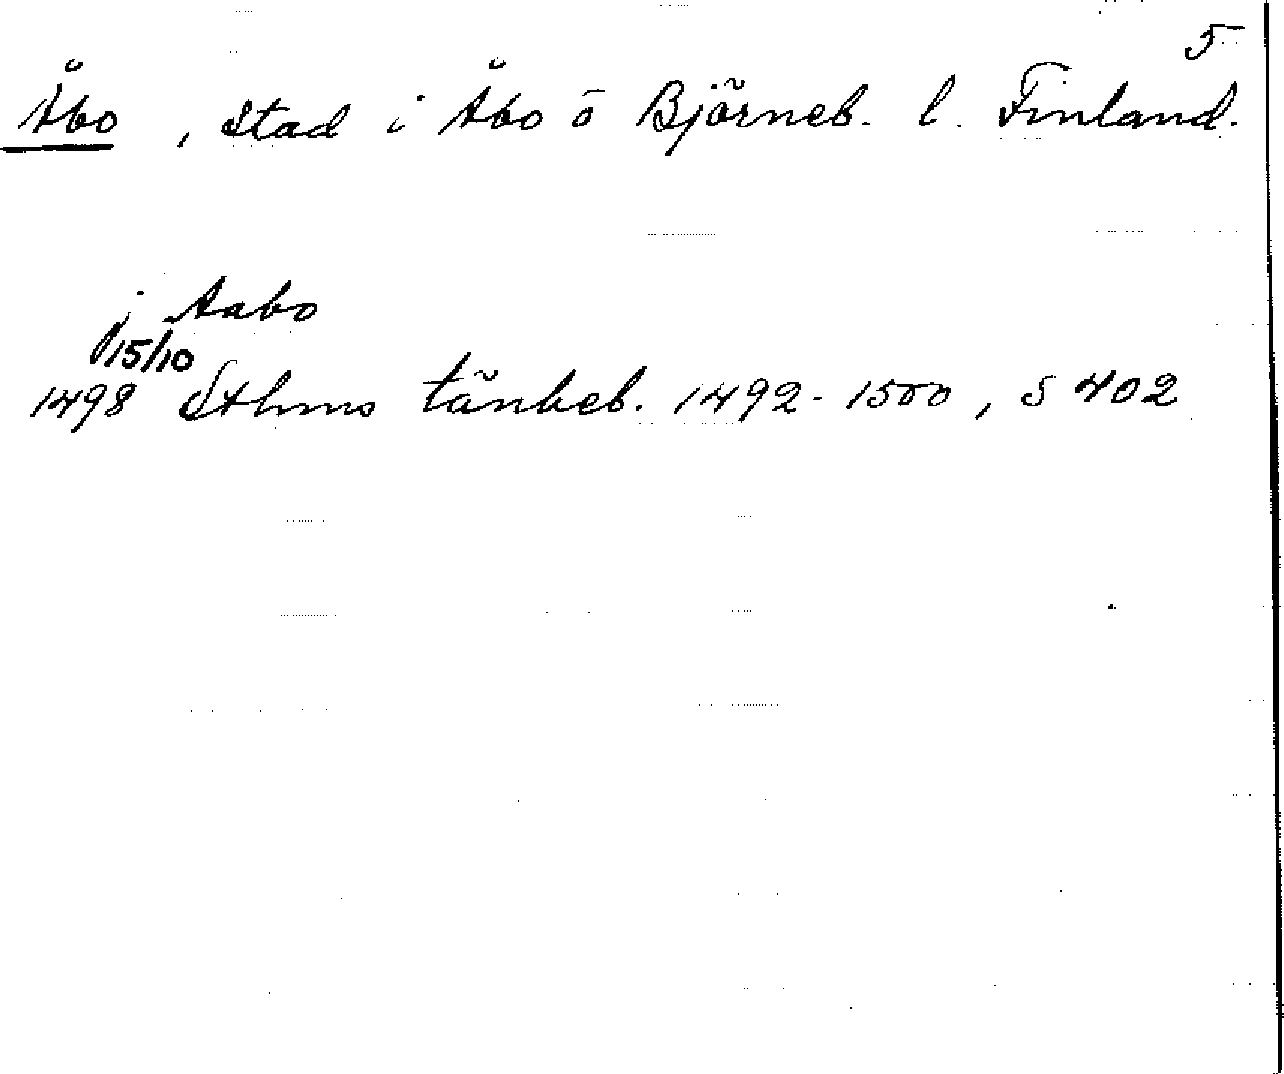 5
Åbo, stad i Åbo o Björneb. l. Finland.
j Aabo
15/10
1498 Sthms tänkeb. 1492-1500, s 402